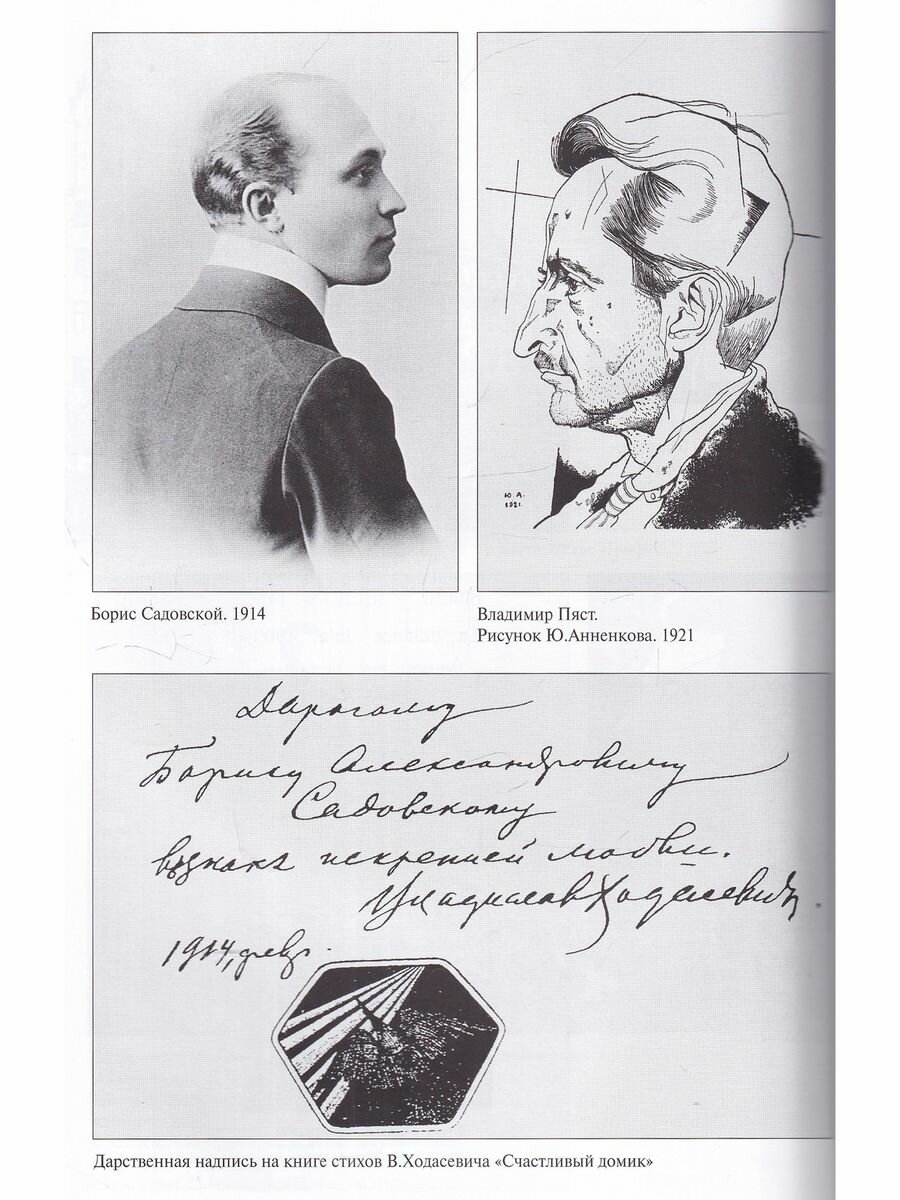 Ю. А.
1921.
Борис Садовской. 1914
Владимир Пяст.
Рисунок Ю.Анненкова. 1921
Дорогому
Борису Александровичу
Садовскому
въ знакъ искренней любви.
Владислав Ходасевичъ
1914, февр.
Дарственная надпись на книге стихов В.Ходасевича «Счастливый домик»